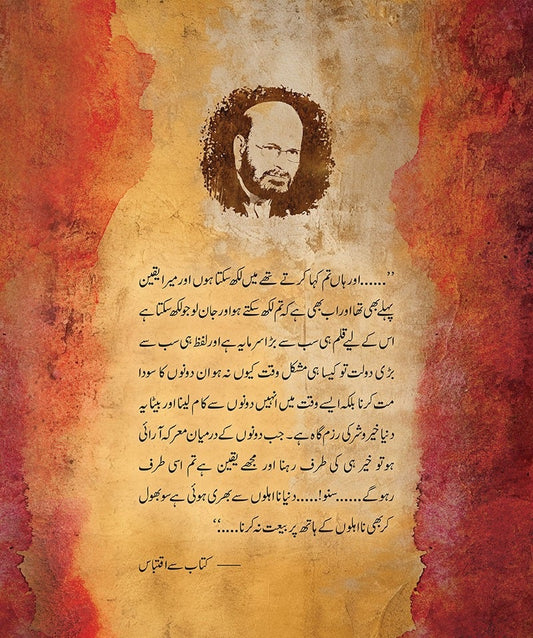 ’’......اور ہاں تم کہا کرتے تھے میں لکھ سکتا ہوں اور میرا یقین
پہلے بھی تھا اور اب بھی ہے کہ تم لکھ سکتے ہو اور جان لو جو لکھ سکتا ہے
اس کے لیے قلم ہی سب سے بڑا سرمایہ ہے اور لفظ ہی سب سے
بڑی دولت تو کیسا ہی مشکل وقت کیوں نہ ہو ان دونوں کا سودا
مت کرنا بلکہ ایسے وقت میں انہیں دونوں سے کام لینا اور بیٹا یہ
دنیا خیر و شر کی رزم گاہ ہے۔ جب دونوں کے درمیان معرکہ آرائی
ہو تو خیر ہی کی طرف رہنا اور مجھے یقین ہے تم اسی طرف
رہو گے......سنو!.....دنیا نااہلوں سے بھری ہوئی ہے سو بھول
کر بھی نااہلوں کے ہاتھ پر بیعت نہ کرنا.....‘‘
— کتاب سے اقتباس